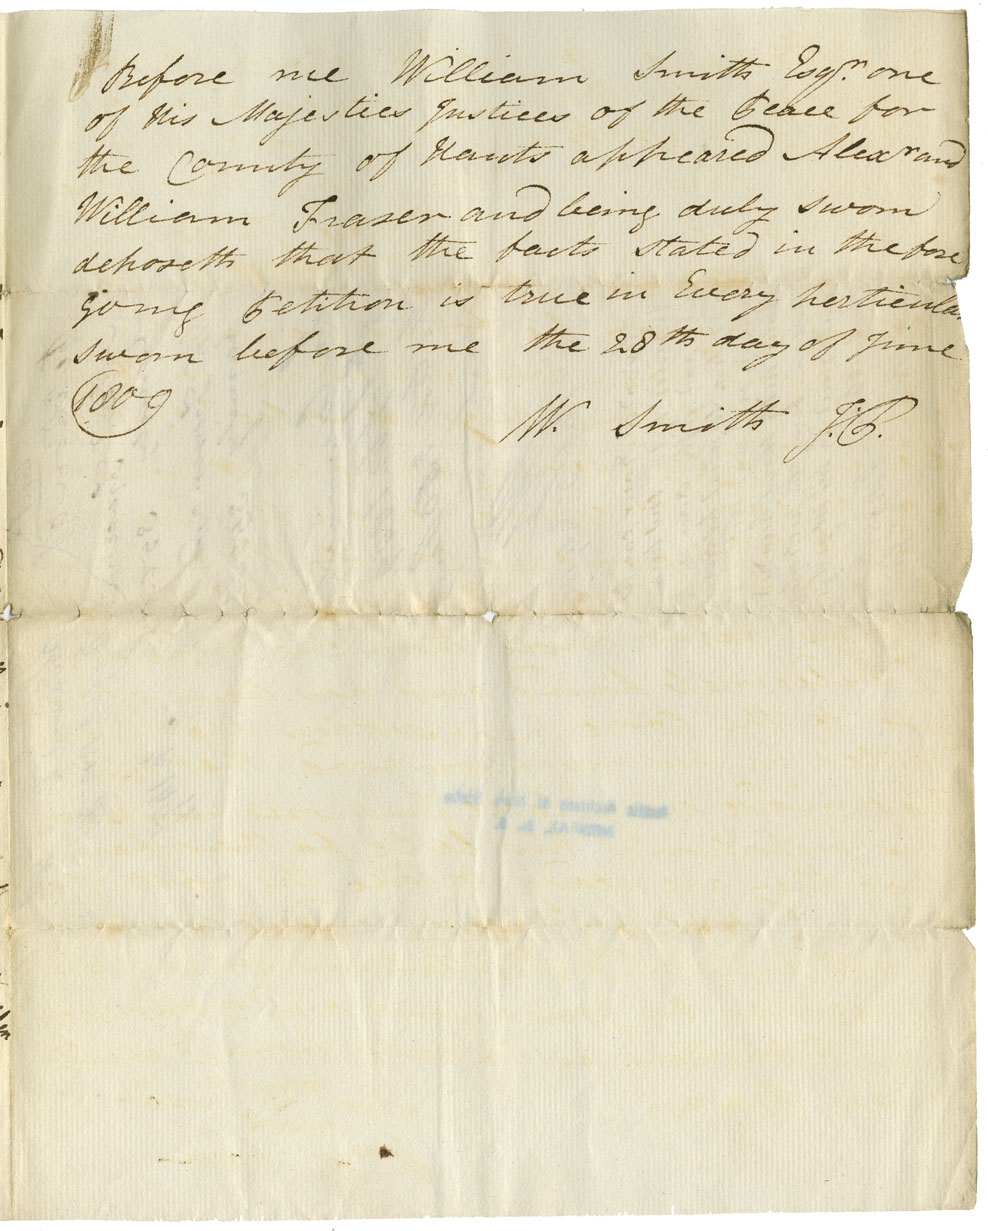 Before me William Smith Esqr. one
of His Majesties Justices of the Peace for
the County of Hants appeared Alexr and
William Fraser and being duly sworn
deposeth that the facts stated in the fore
going Petition is true in Every perticular
sworn before me the 28th day of June
1809
W. Smith J.P.